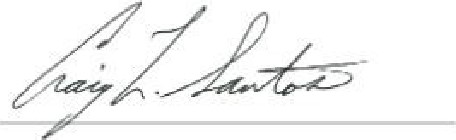 Craig L. Santos